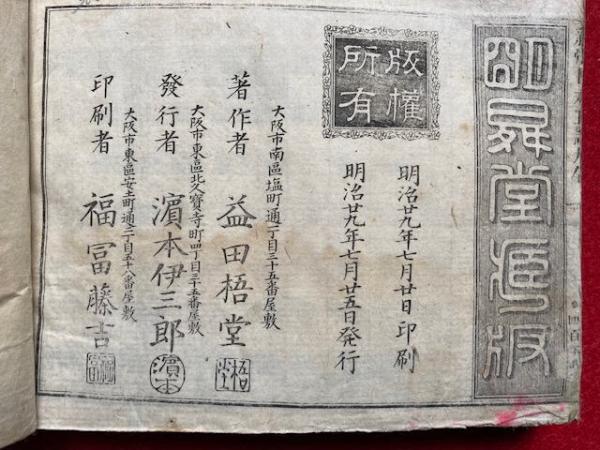 明昇堂蔵版
版權
所有
明治廿九年七月廿日印刷
明治廿九年七月廿五日発行
大阪市南區塩町通一丁目三十五番屋敷
著作者 益田梧堂
大阪市東區北久寳寺町四丁目三十五番屋敷
發行者 濱本伊三郎
濱本
大阪市東區安土町通二丁目五十八番屋敷
印刷者 福冨藤吉